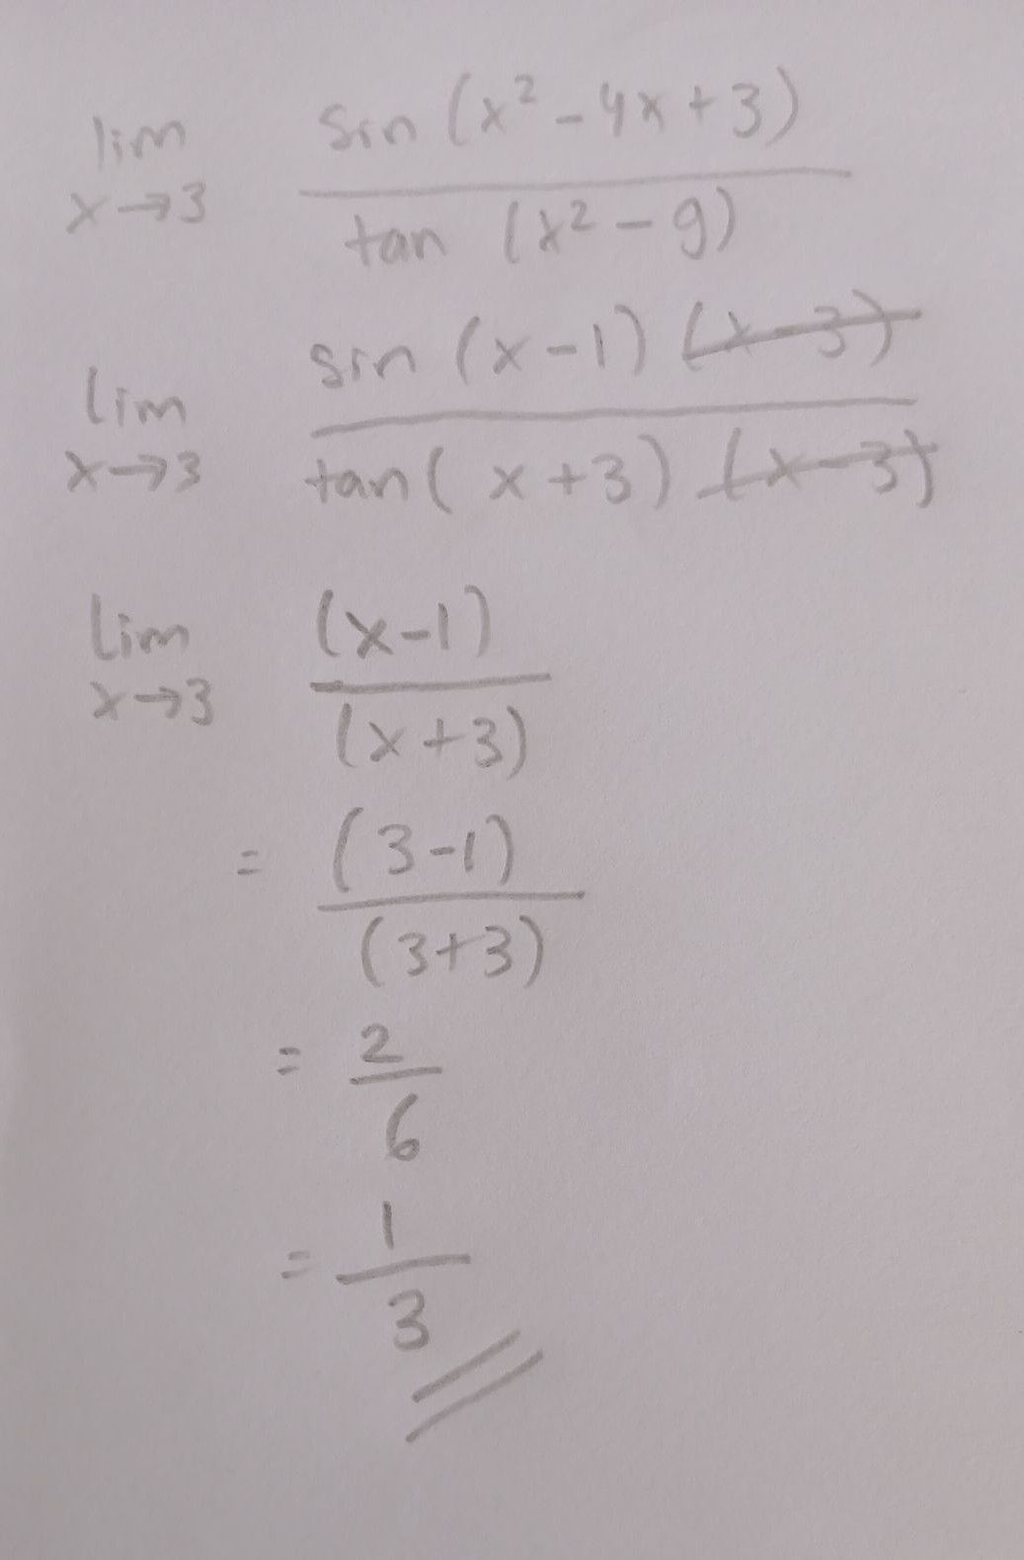 lim x→3 sin (x² - 4x + 3) / tan (x² - 9)
lim x→3 sin (x - 1) (x - 3) / tan (x + 3) (x - 3)
lim x→3 (x - 1) / (x + 3)
= (3 - 1) / (3 + 3)
= 2 / 6
= 1 / 3